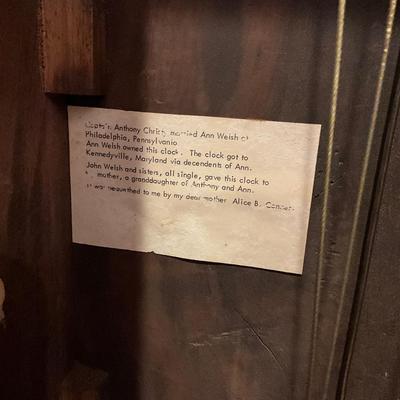 Captain Anthony Christy married Ann Welsh of
Philadelphia, Pennsylvania
Ann Welsh owned this clock. The clock got to
Kennedyville, Maryland via decendents of Ann.
John Welsh and sisters, all single, gave this clock to
mother, a granddaughter of Anthony and Ann.
It was bequeathed to me by my dear mother Alice B.